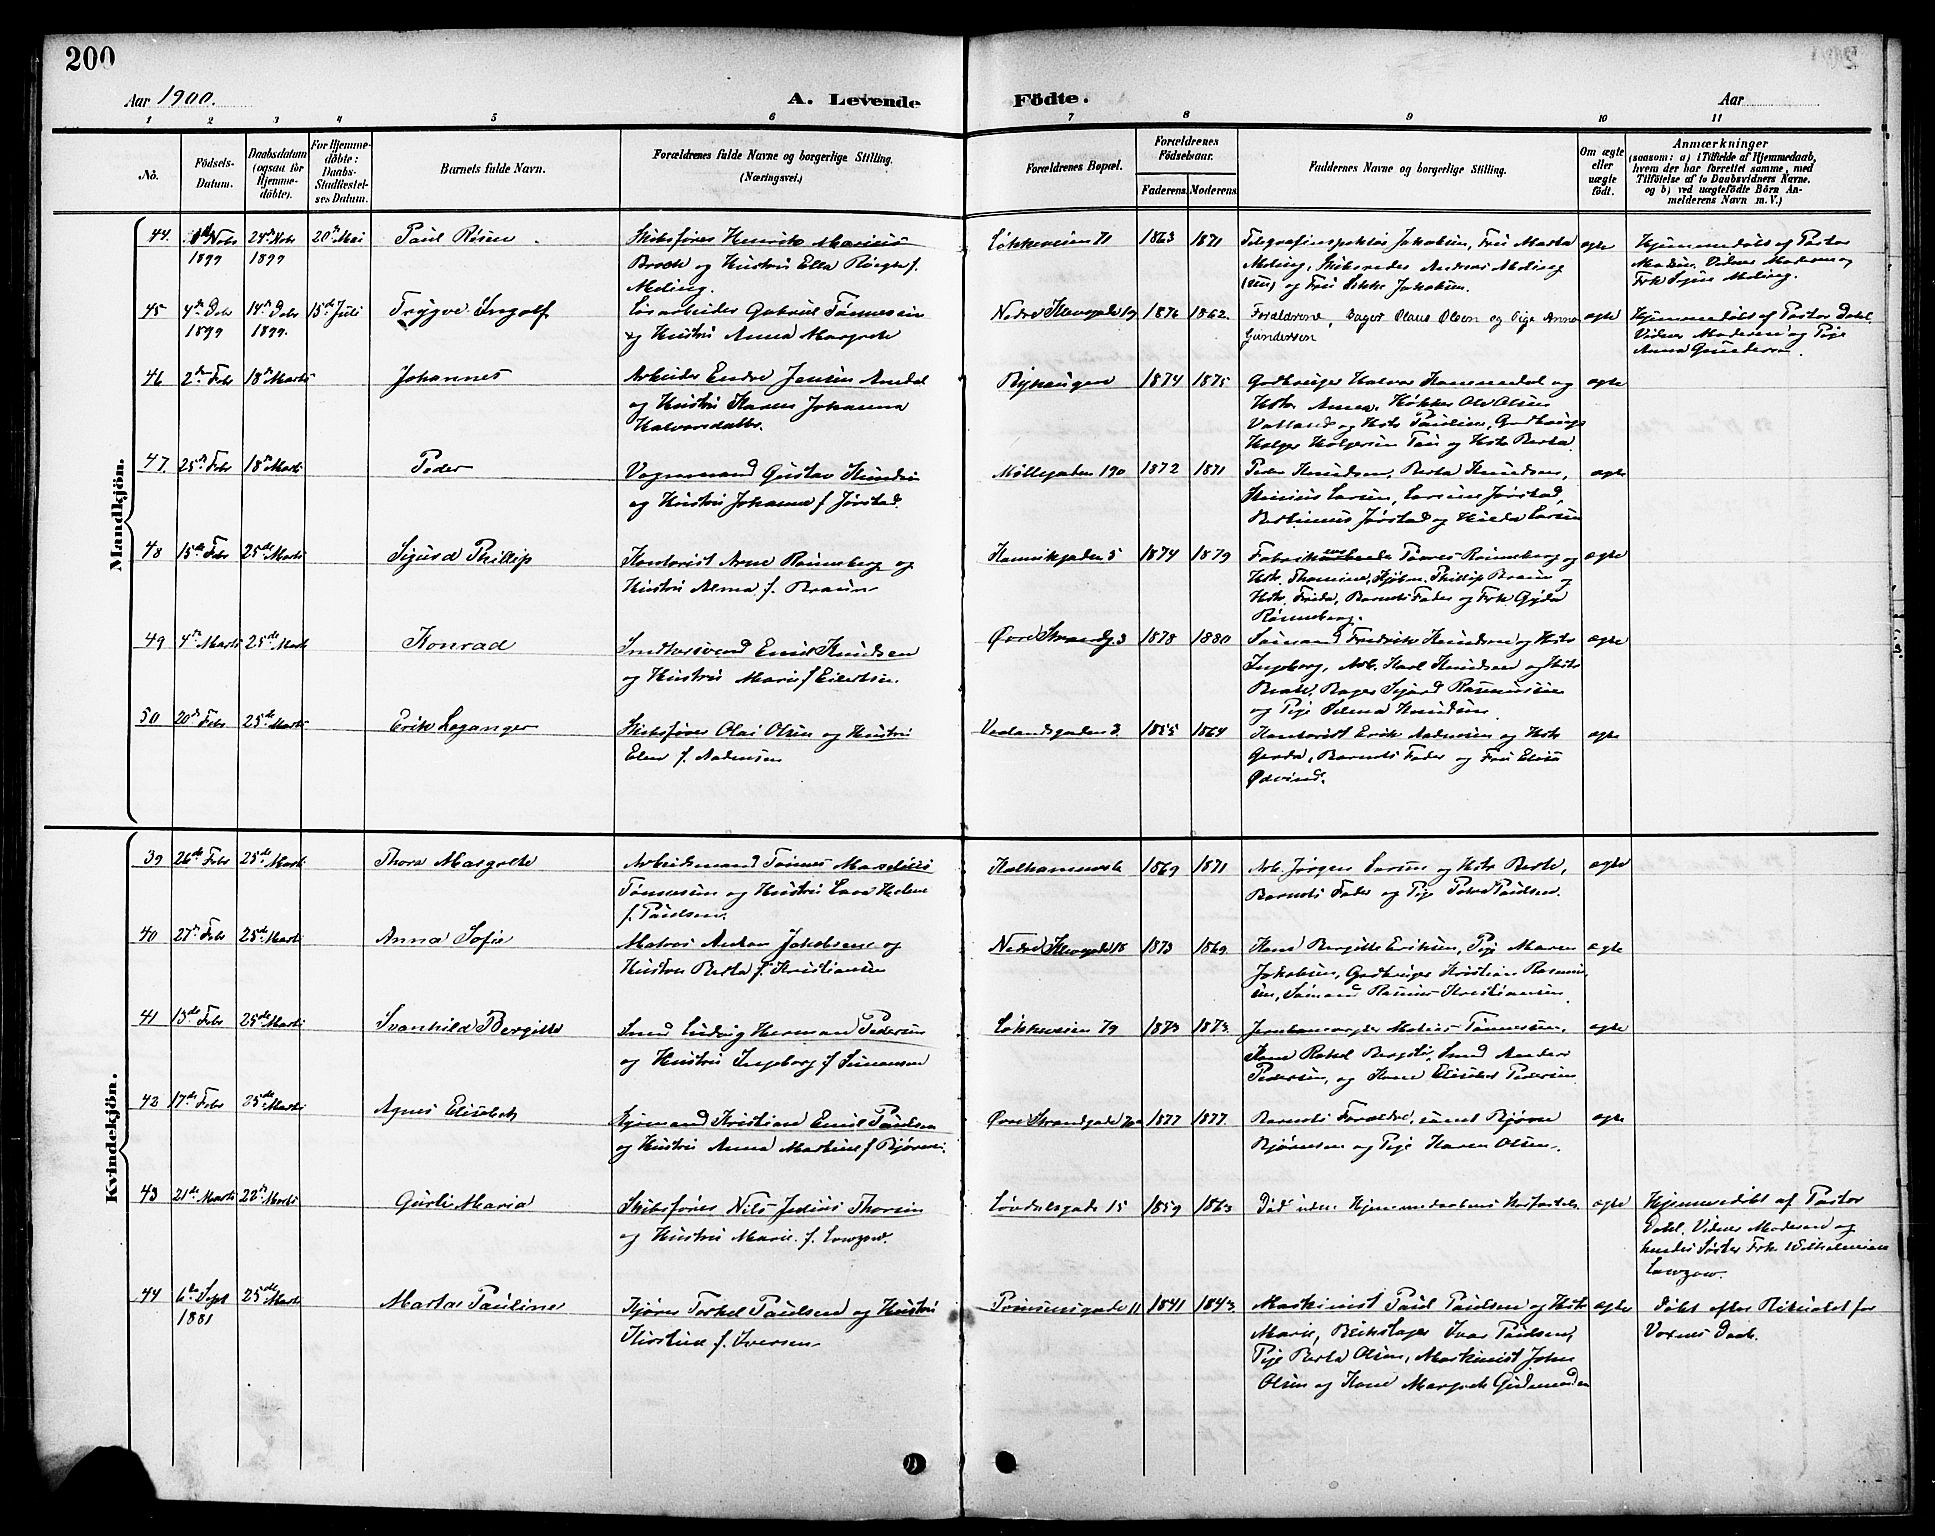 200
Aar 1900.
A. Levende Födte.
Aar
1 2 3 4 5 6 7 8 9 10 11
No.
Födsels-Datum.
Daabsdatum (ogsaa for Hjemme-döbte).
For Hjemme-döbte: Daabs-Stadfæstel-ses Datum.
Barnets fulde Navn.
Forældrenes fulde Navne og borgerlige Stilling. (Næringsvei.)
Forældrenes Bopæl.
Forældrenes Födselsaar.
Faderens. Moderens.
Faddernes Navne og borgerlige Stilling.
Om ægte eller uægte födt.
Anmærkninger
(saasom: a) i Tilfælde af Hjemmedaab, hvem der har forrettet samme, med Tilföielse af to Daabsvidners Navne, og b) ved uægtefödte Börn An-melderens Navn m. V.)
Mandkjön.
44. Nobr 1899 24de Nobr 1899 20de Mai Paul
Skibsfører Henrik Marius
og Hustru Ella f.
Meling.
Løkkeveien 71 1863 1871
Telegrafinspektør Jakobsen, Fru Marta
Meling, Skibsreder Andreas Meling
og Fru Jakobsen.
ægte
Hjemmedøbt af Pastor
Vidner Moderen og
Frk Meling.
45 4de Dbr 1899 14de Dbr 1899. 15de Juli Trygve Ingolf
Løsarbeider Gabriel Tønnessen
og Hustru Anna Margrete
Nedre 19 1876 1862.
Forældrene, Bager Olaus Olsen og Pige Anna
Gundersen
ægte
Hjemmedøbt af Pastor Dahl.
Vidner Moderen og Pige
Anna Gundersen.
46 2den Febr 18de Marts Johannes
Arbeider Endre Jensen
og Hustru Karen Johanna
Halvorsdatter.
Byhaugen 1874 1875
Gaardbruger Halvor og
Hstr. Anna, Olsen
og Hstr Pauline, Gaardbruger
Holger Holgersen Tau og Hstr Berta.
ægte
47. 25de Febr 18de Marts Peder
Vognmand Gustav Knudsen
og Hustru Johanna f. Jørstad.
Møllegaden 190 1872 1871
Peder Knudsen, Berta Knudsen,
Larsen, Jørstad,
Jørstad og Hulda Larsen
ægte
48 15de Febr 25de Marts Sigurd Phillip
Kontorist Arne Rønneberg og
Hustru Alma f. Braun
5 1874 1879
Tønnes Rønneberg og
Hstr. Thomine, Kjøbm. Phillip Braun og
Hstr. Frida, Barnets Fader og Frk. Gyda
Rønneberg.
ægte
49 4de Marts 25de Marts Konrad
Emil Knudsen
og Hustru Marie f. Eilertsen.
Øvre Strandg 3 1878 1880
Sømand Fredrik Knudsen og Hstr
Ingeborg, Arb. Karl Knudsen og Hstr
Beate, Bager Sigurd Rasmussen
og Pige Selma Knudsen.
ægte
50 20de Febr 25de Marts Erik Leganger
Skibsfører Olai Olsen og Hustru
Elen f. Aadnesen
1855 1864
Kontorist Erik Aadnesen og Hstr
Gerda, Barnets Fader og Fru Elisa
ægte
Kvindekjön.
39 26de Febr 25de Marts Thora Margrethe
Arbeidsmand Tønnes
Tønnessen og Hustru Lava Helene
f. Paulsen.
Kalhammervk 1869 1871
Arb. Jørgen Larsen og Hstr Berta,
Barnets Fader og Pige Petra Paulsen.
ægte
40 27de Febr 25de Marts Anna Sofie
Matros Anton Jakobsen og
Hustru Berta f. Kristiansen
Nedre 18 1873 1869.
Kone Bergitte Eriksen, Pige Maren
Jakobsen, Gaardbruger Kristian
Sømand Rasmus Kristiansen
ægte
41 13de Febr 25de Marts Svanhild Bergitte
Smed Ludvig Herman Pedersen
og Hustru Ingeborg f. Simonsen
Løkkeveien 79 1873 1873.
Tønnessen,
Kone Rakel Smed Anders
Pedersen, og Kone Elisabet Pedersen
ægte
42 17de Febr 25de Marts Agnes Elisabeth
Kristian Emil Paulsen
og Hustru Anna Martine f. Bjørnsen.
Øvre Strandgade 1877 1877.
Barnets Forældre, samt Bjørn
Bjørnsen og Pige Karen Olsen.
ægte
43 21de Marts 22de Marts Gurli Maria
Skibsfører Nils Julius Thorsen
og Hustru Marie f. Lowzow.
Løvdalsgade 15 1859 1863
Død uden Hjemmedaabens Stadfæstelse
ægte
Hjemmedøbt af Pastor
Dahl. Vidner Moderen og
hendes Søster Frk Wilhelmine
Lowzow.
44 6te Sept 1881 25de Marts Marta Pauline
Kjører Torkel Paulsen og Hustru
Kirstine f. Iversen
Prinsensgade 11 1841 1843
Maskinist Paul Paulsen og Hstr
Marie, Ivar Paulsen,
Pige Berta Olsen, Maskinist John
Olsen og Kone Margrete Gudmundsen
ægte
Døbt efter Ritualet for
Voxnes Daab.